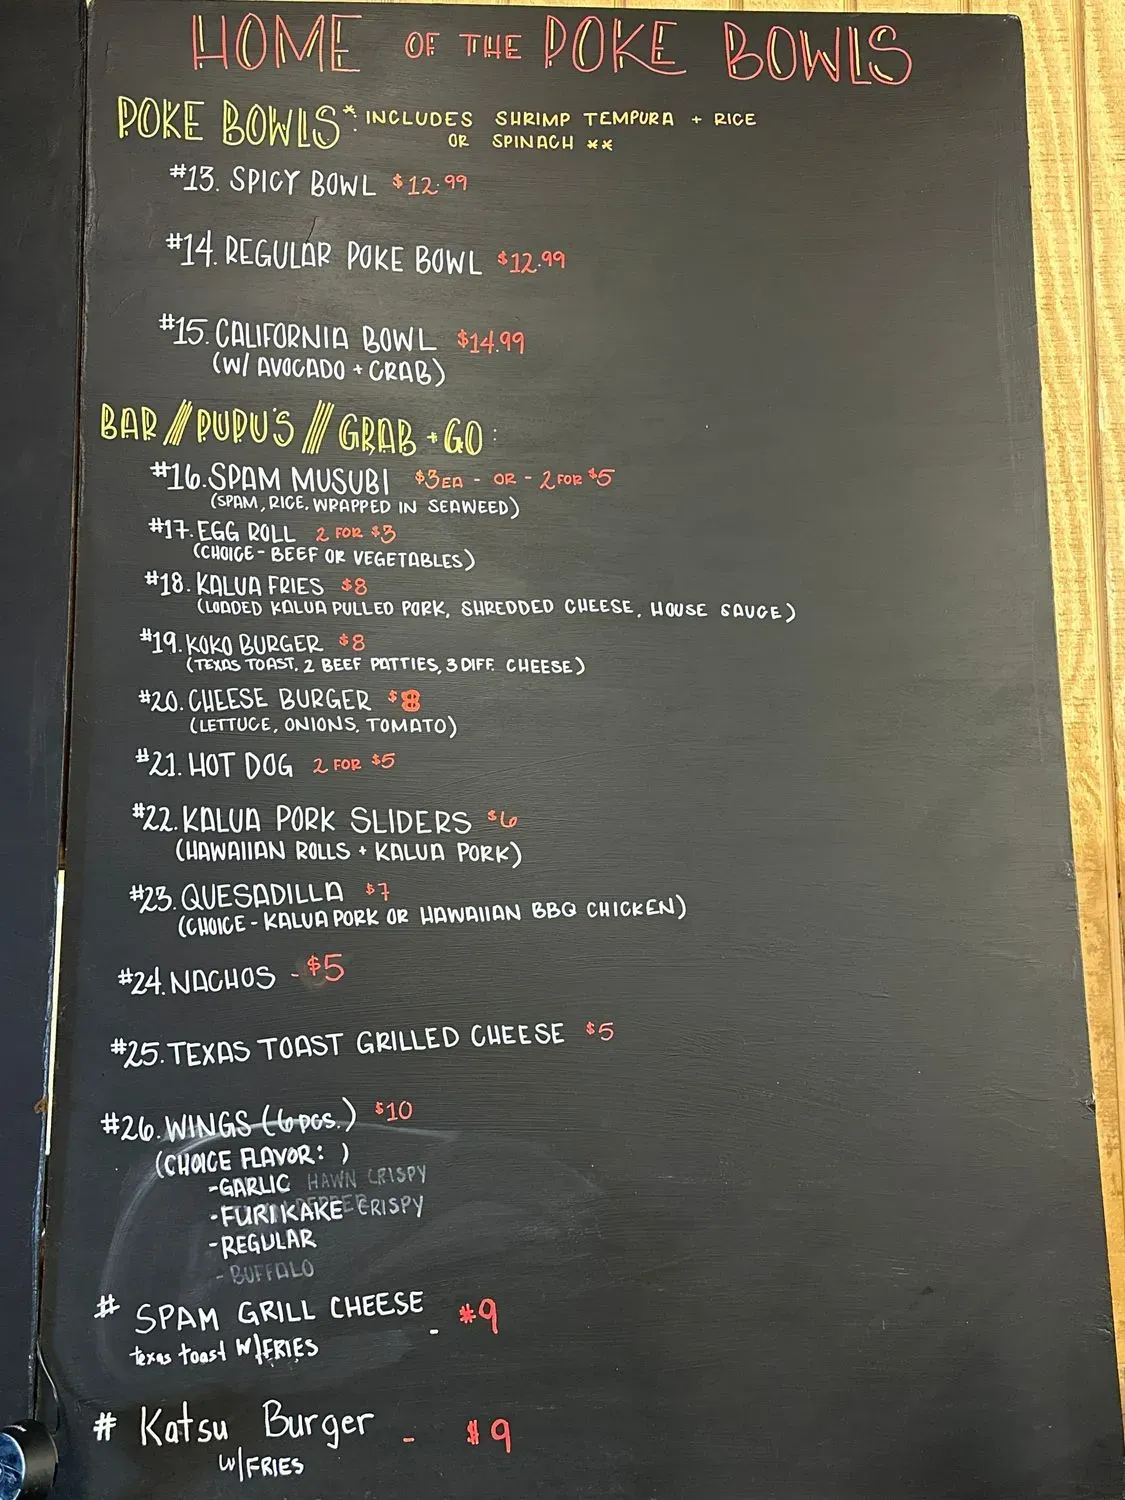 HOME OF THE POKE BOWLS
POKE BOWLS*: INCLUDES SHRIMP TEMPURA + RICE
OR SPINACH **
#13. SPICY BOWL $12.99
#14. REGULAR POKE BOWL $12.99
#15. CALIFORNIA BOWL $14.99
(W/ AVOCADO + CRAB)
BAR // PUPU'S // GRAB + GO:
#16. SPAM MUSUBI $3EA - OR - 2 FOR $5
(SPAM, RICE, WRAPPED IN SEAWEED)
#17. EGG ROLL 2 FOR $3
(CHOICE - BEEF OR VEGETABLES)
#18. KALUA FRIES $8
(LOADED KALUA PULLED PORK, SHREDDED CHEESE, HOUSE SAUCE)
#19. KOKO BURGER $8
(TEXAS TOAST, 2 BEEF PATTIES, 3 DIFF. CHEESE)
#20. CHEESE BURGER $8
(LETTUCE, ONIONS, TOMATO)
#21. HOT DOG 2 FOR $5
#22. KALUA PORK SLIDERS $6
(HAWAIIAN ROLLS + KALUA PORK)
#23. QUESADILLA $7
(CHOICE - KALUA PORK OR HAWAIIAN BBQ CHICKEN)
#24. NACHOS - $5
#25. TEXAS TOAST GRILLED CHEESE $5
#26. WINGS (6 PCS.) $10
(CHOICE FLAVOR: )
- GARLIC HAWN CRISPY
- FURIKAKE CRISPY
- REGULAR
- BUFFALO
# SPAM GRILL CHEESE - $9
texas toast W/FRIES
# Katsu Burger - $9
W/FRIES